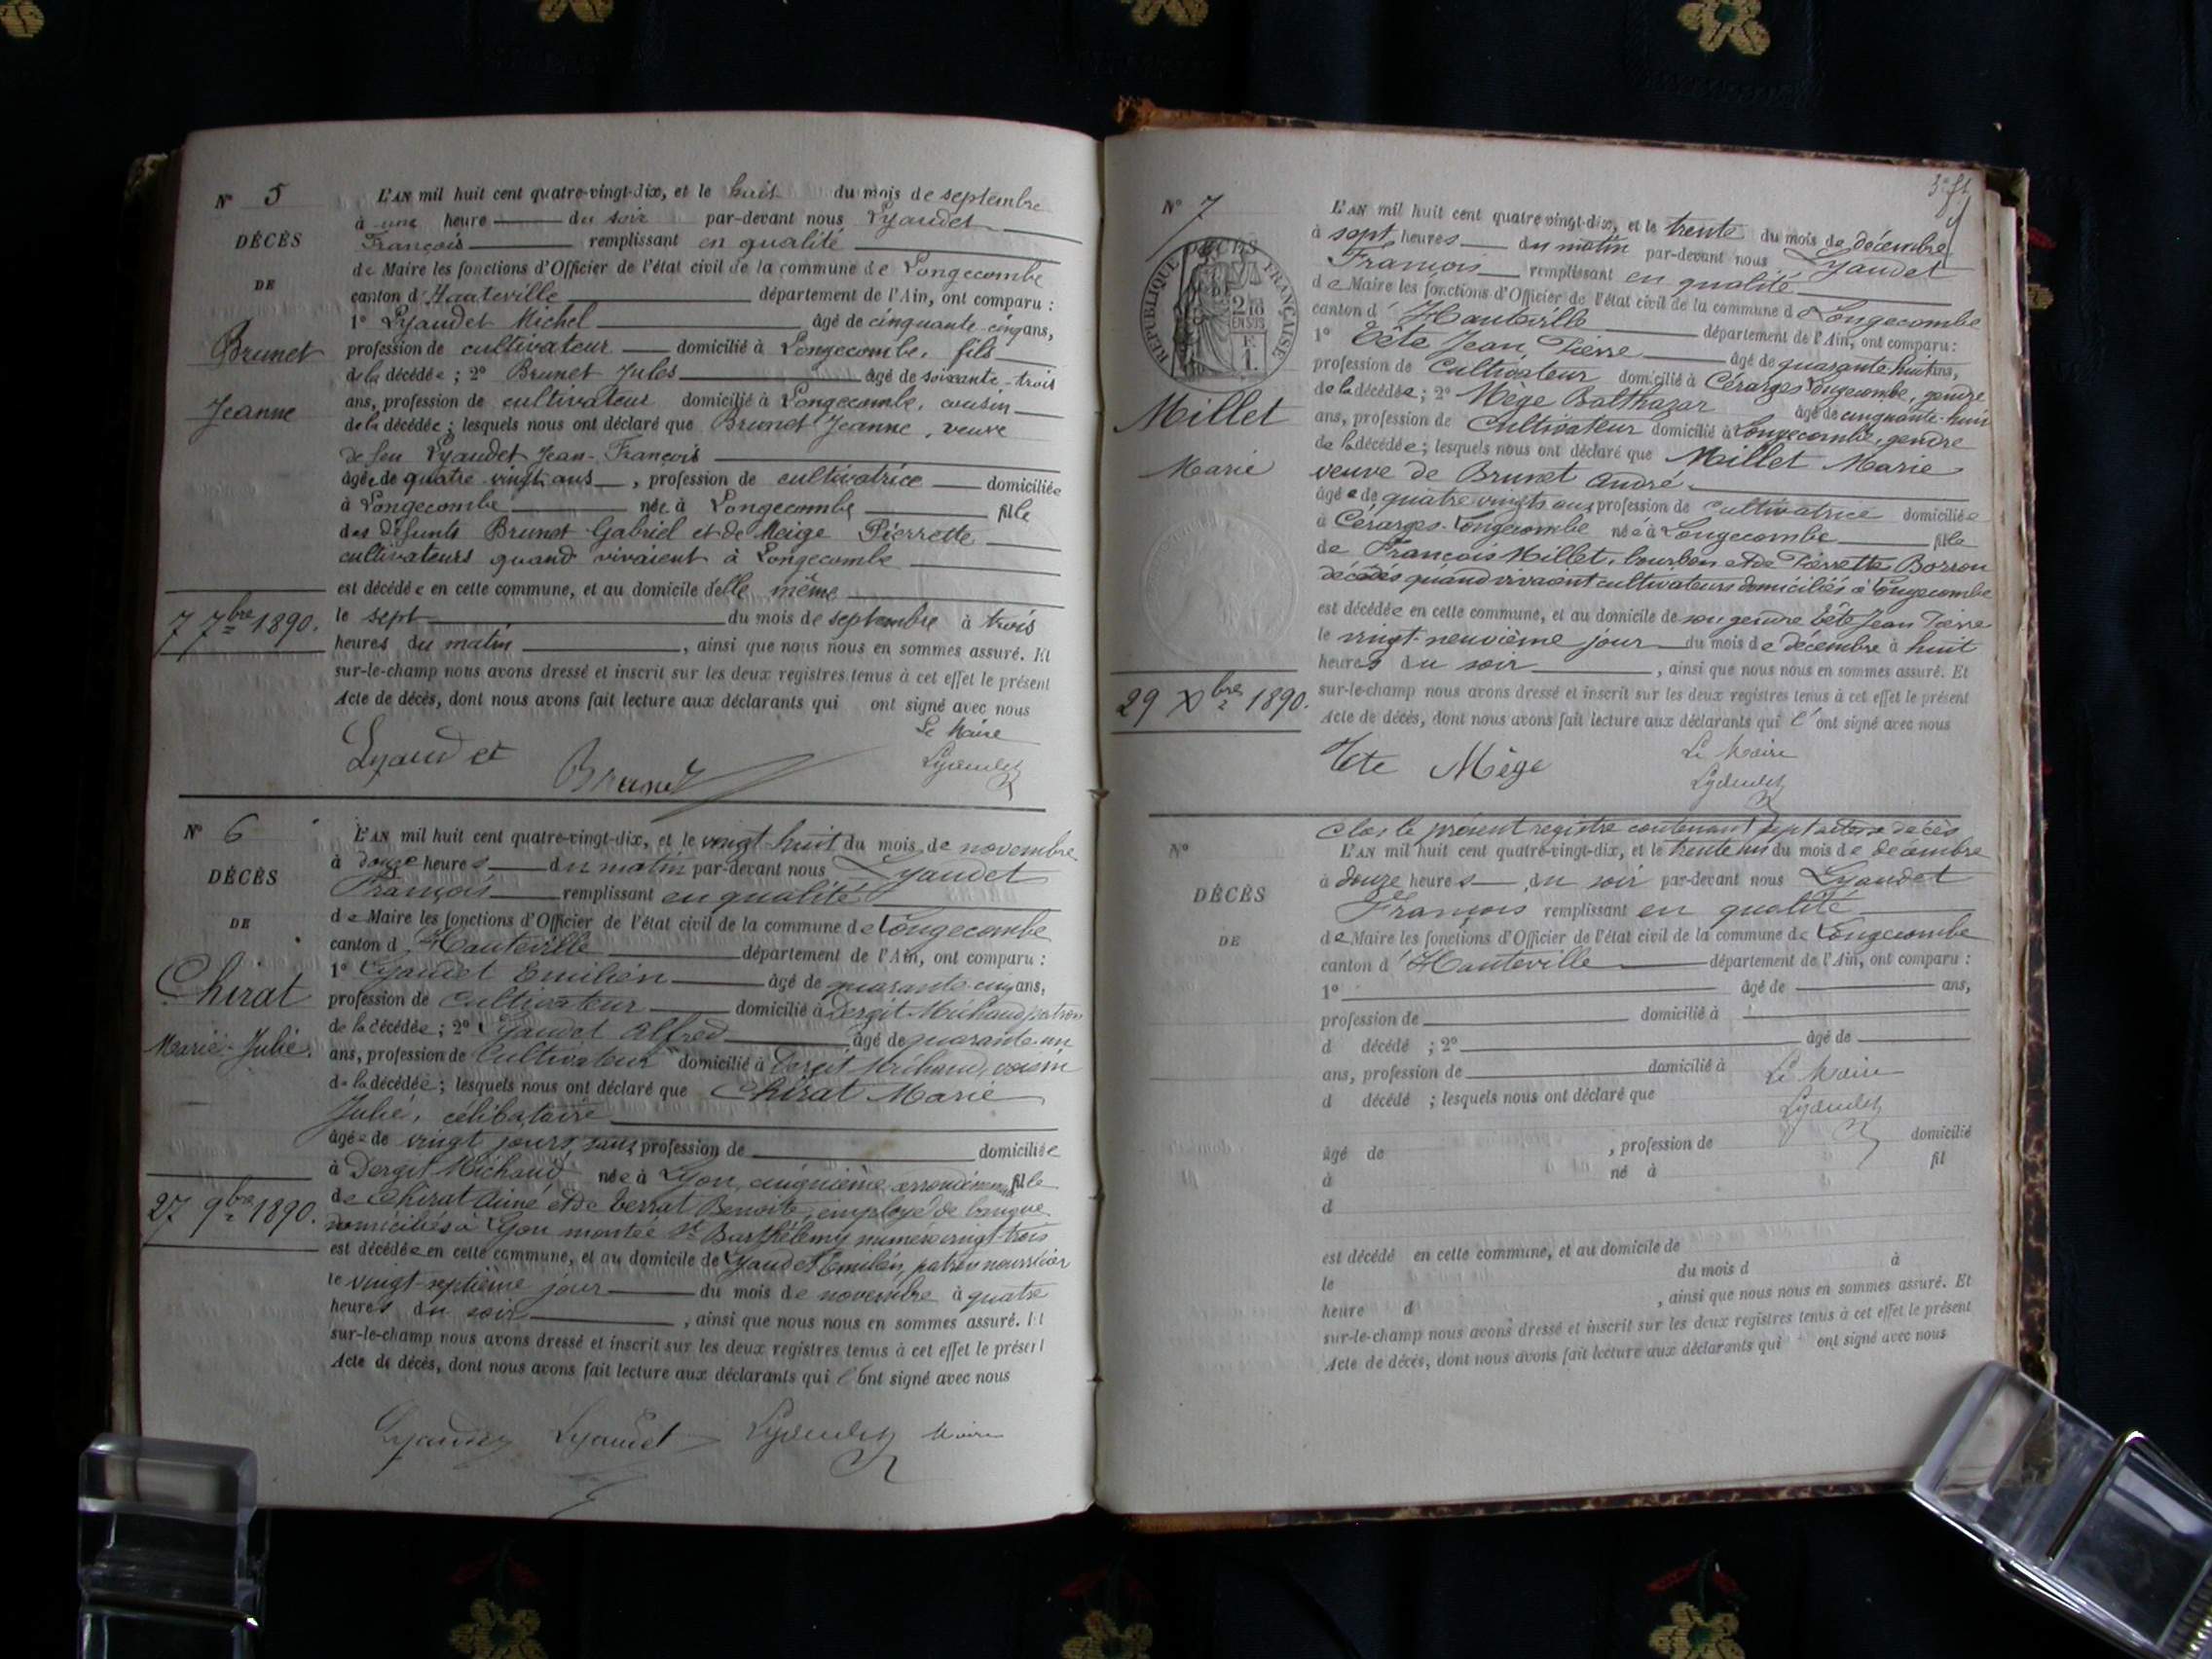 N° 5
DÉCÈS
DE
Brunet
Jeanne
7 7bre 1890.
L'AN mil huit cent quatre-vingt-dix, et le huit du mois de septembre
à une heure du soir par-devant nous Lyaudet
François remplissant en qualité
de Maire les fonctions d'Officier de l'état civil de la commune de Longecombe
canton d'Hauteville département de l'Ain, ont comparu :
1° Lyaudet Michel âgé de cinquante-cinq ans,
profession de cultivateur domicilié à Longecombe, fils
de la décédée ; 2° Brunet Jules âgé de soixante-trois
ans, profession de cultivateur domicilié à Longecombe, cousin
de la décédée ; lesquels nous ont déclaré que Brunet Jeanne, veuve
de feu Lyaudet Jean-François
âgée de quatre-vingt ans, profession de cultivatrice domiciliée
à Longecombe née à Longecombe fille
des défunts Brunet Gabriel et de Meige Pierrette
cultivateurs quand vivaient à Longecombe
est décédée en cette commune, et au domicile d'elle même
le sept du mois de septembre à trois
heures du matin, ainsi que nous nous en sommes assuré. Et
sur-le-champ nous avons dressé et inscrit sur les deux registres tenus à cet effet le présent
Acte de décès, dont nous avons fait lecture aux déclarants qui ont signé avec nous
Le Maire
Lyaudet Brunet Lyaudet
N° 6
DÉCÈS
DE
Chirat
Marie-Julie.
27 9bre 1890.
L'AN mil huit cent quatre-vingt-dix, et le vingt-huit du mois de novembre
à douze heures du matin par-devant nous Lyaudet
François remplissant en qualité
de Maire les fonctions d'Officier de l'état civil de la commune de Longecombe
canton d'Hauteville département de l'Ain, ont comparu :
1° Lyaudet Emilien âgé de quarante-cinq ans,
profession de Cultivateur domicilié à Dergit-Michaud, patron
de la décédée ; 2° Lyaudet Alfred âgé de quarante-un
ans, profession de Cultivateur domicilié à Dergit Michaud, voisin
de la décédée ; lesquels nous ont déclaré que Chirat Marie
Julie, célibataire
âgée de vingt jours, sans profession de domiciliée
à Dergit Michaud née à Lyon, cinquième arrondissement fille
de Chirat Aimé et de Terrat Benoite, employé de banque
domiciliés à Lyon montée St Barthélemy numéro vingt-trois
est décédée en cette commune, et au domicile de Lyaudet Emilien, patron nourricier
le vingt-septième jour du mois de novembre à quatre
heures du soir, ainsi que nous nous en sommes assuré. Et
sur-le-champ nous avons dressé et inscrit sur les deux registres tenus à cet effet le présent
Acte de décès, dont nous avons fait lecture aux déclarants qui l'ont signé avec nous
Lyaudet Lyaudet Lyaudet Maire
N° 7
DÉCÈS
RÉPUBLIQUE FRANÇAISE
Millet
Marie
29 Xbre 1890.
L'AN mil huit cent quatre-vingt-dix, et le trente du mois de décembre
à sept heures du matin par-devant nous Lyaudet
François remplissant en qualité
de Maire les fonctions d'Officier de l'état civil de la commune de Longecombe
canton d'Hauteville département de l'Ain, ont comparu :
1° Tête Jean Pierre âgé de quarante-huit ans,
profession de Cultivateur domicilié à Cérarges Longecombe, gendre
de la décédée ; 2° Mège Balthazar âgé de cinquante-huit
ans, profession de Cultivateur domicilié à Longecombe, gendre
de la décédée ; lesquels nous ont déclaré que Millet Marie
veuve de Brunet André
âgée de quatre vingts ans profession de Cultivatrice domiciliée
à Cérarges-Longecombe née à Longecombe fille
de François Millet, bourbon et de Pierrette Borron
décédés quand vivaient cultivateurs domiciliés à Longecombe
est décédée en cette commune, et au domicile de son gendre Tête Jean Pierre
le vingt-neuvième jour du mois de décembre à huit
heures du soir, ainsi que nous nous en sommes assuré. Et
sur-le-champ nous avons dressé et inscrit sur les deux registres tenus à cet effet le présent
Acte de décès, dont nous avons fait lecture aux déclarants qui l'ont signé avec nous
Tete Mège Le Maire
Lyaudet
N°
DÉCÈS
DE
Clos le présent registre contenant sept actes de décès
L'AN mil huit cent quatre-vingt-dix, et le trente un du mois de décembre
à douze heures du soir par-devant nous Lyaudet
François remplissant en qualité
de Maire les fonctions d'Officier de l'état civil de la commune de Longecombe
canton d'Hauteville département de l'Ain, ont comparu :
1° âgé de ans,
profession de domicilié à
d décédé ; 2° âgé de
ans, profession de domicilié à Le Maire
d décédé ; lesquels nous ont déclaré que Lyaudet
âgé de , profession de domicilié
à né à fil
d
est décédé en cette commune, et au domicile de
le du mois d à
heure d , ainsi que nous nous en sommes assuré. Et
sur-le-champ nous avons dressé et inscrit sur les deux registres tenus à cet effet le présent
Acte de décès, dont nous avons fait lecture aux déclarants qui ont signé avec nous